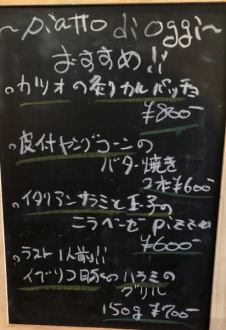 ~piatto di oggi~
おすすめ!!
○カツオの炙りカルパッチョ
¥800-
○皮付ヤングコーンの
バター焼き
2本¥600-
○イタリアンサラミと玉子の
ニラベーゼpizza
¥600-
○ラスト1人前!!
イベリコ豚のハラミの
グリル
150g ¥700-